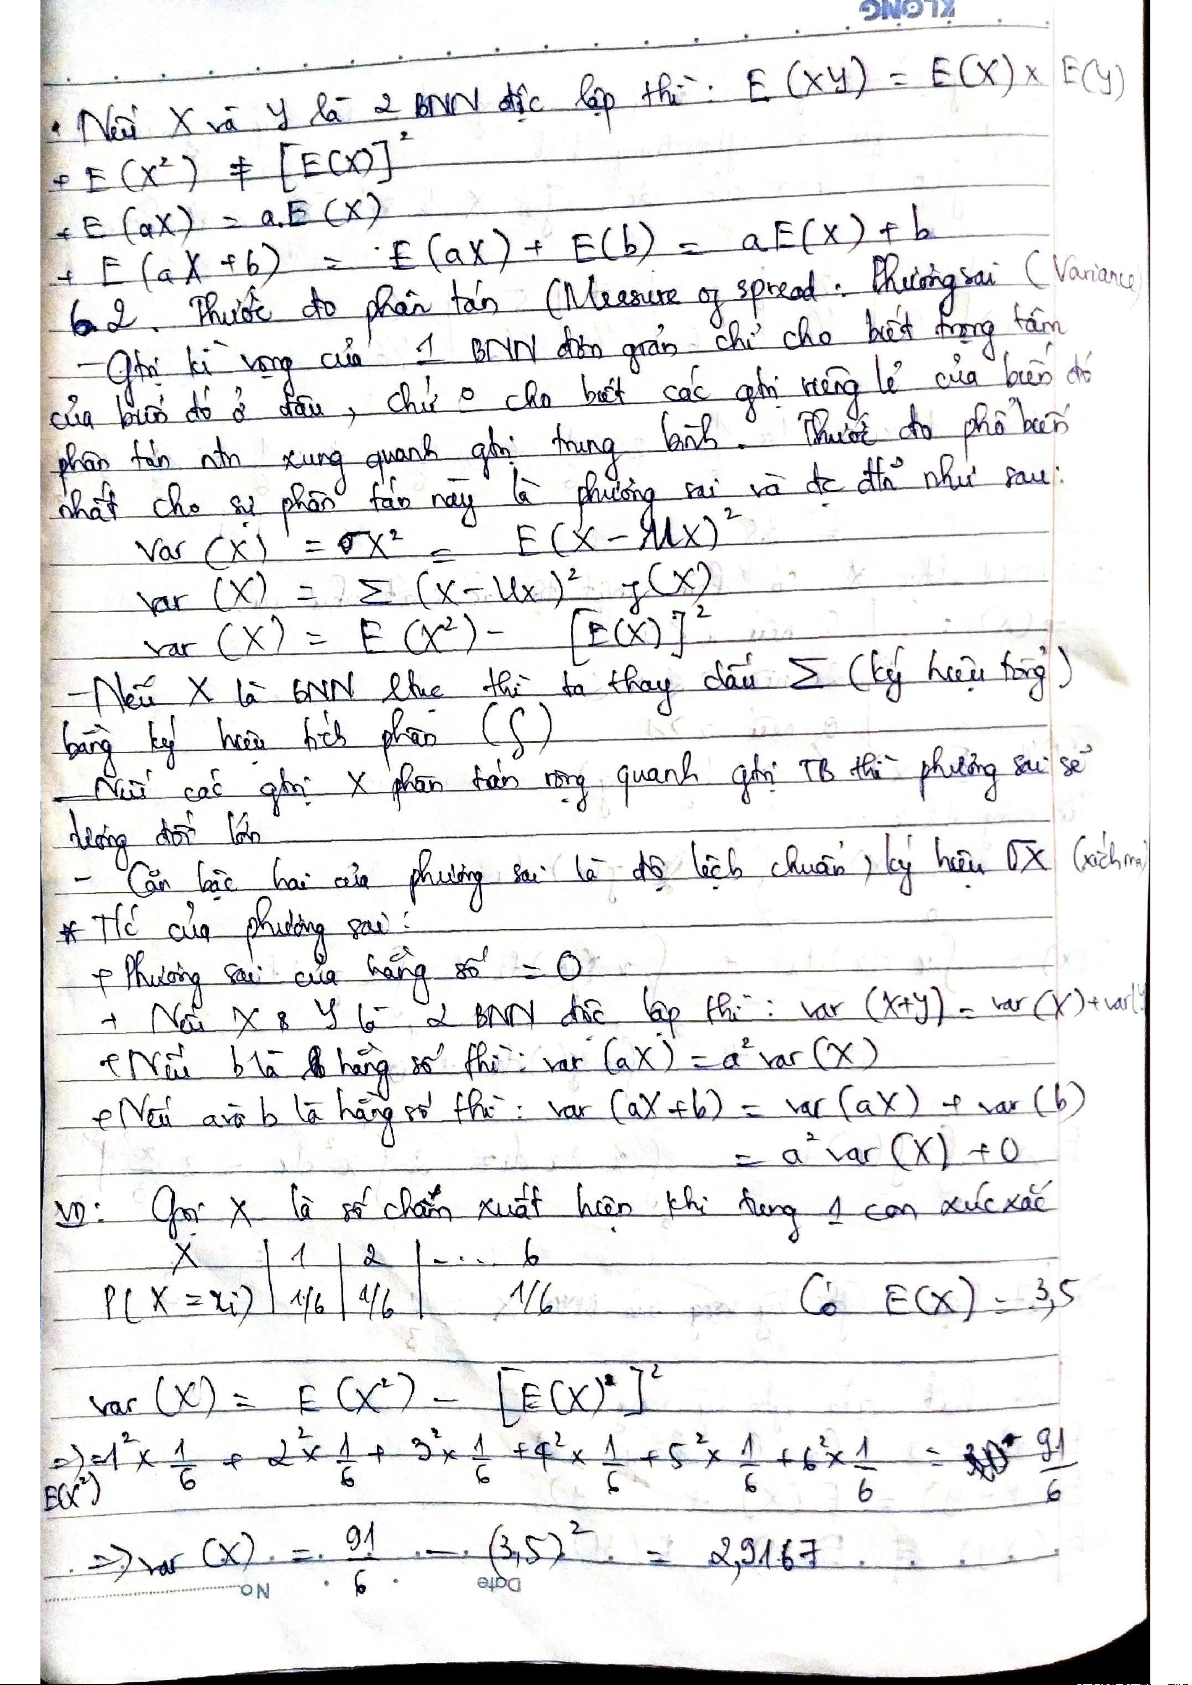 KLONG
• Nếu X và Y là 2 BNN độc lập thì: E(XY) = E(X) x E(Y)
+ E(X²) ≠ [E(X)]²
+ E(aX) = a.E(X)
+ E(aX+b) = E(aX) + E(b) = aE(X) + b
6.2. Thước đo phân tán (Measure of spread: Phương sai (Variance)
- Gtrị kì vọng của 1 BNN đơn giản chỉ cho biết trọng tâm
của biến đó ở đâu, chứ o cho biết các gtrị riêng lẻ của biến đó
phân tán ntn xung quanh gtrị trung bình. Thước đo phổ biến
nhất cho sự phân tán này là phương sai và đc đn như sau:
Var(X) = σX² = E(X-μX)²
var(X) = Σ(X-μx)² f(X)
var(X) = E(X²) - [E(X)]²
- Nếu X là BNN ltục thì ta thay dấu Σ (ký hiệu tổng)
bằng ký hiệu tích phân (∫)
- Nếu các gtrị X phân tán rộng quanh gtrị TB thì phương sai sẽ
tương đối lớn
- Căn bậc hai của phương sai là độ lệch chuẩn, ký hiệu σX (xích ma)
* T/c của phương sai:
+ Phương sai của hằng số = 0
+ Nếu X & Y là 2 BNN độc lập thì: var(X+Y) = var(X) + var(Y
+ Nếu b là hằng số thì: var(aX) = a² var(X)
+ Nếu a và b là hằng số thì: var(aX+b) = var(aX) + var(b)
= a² var(X) + 0
VD: Gọi X là số chấm xuất hiện khi tung 1 con xúc xắc
X | 1 | 2 | .... 6
P(X=xi) | 1/6 | 1/6 | 1/6 Có E(X) = 3,5
var(X) = E(X²) - [E(X)]²
=> E(X²) = 1² x 1/6 + 2² x 1/6 + 3² x 1/6 + 4² x 1/6 + 5² x 1/6 + 6² x 1/6 = 91/6
=> var(X) = 91/6 - (3,5)² = 2,9167
No. Date